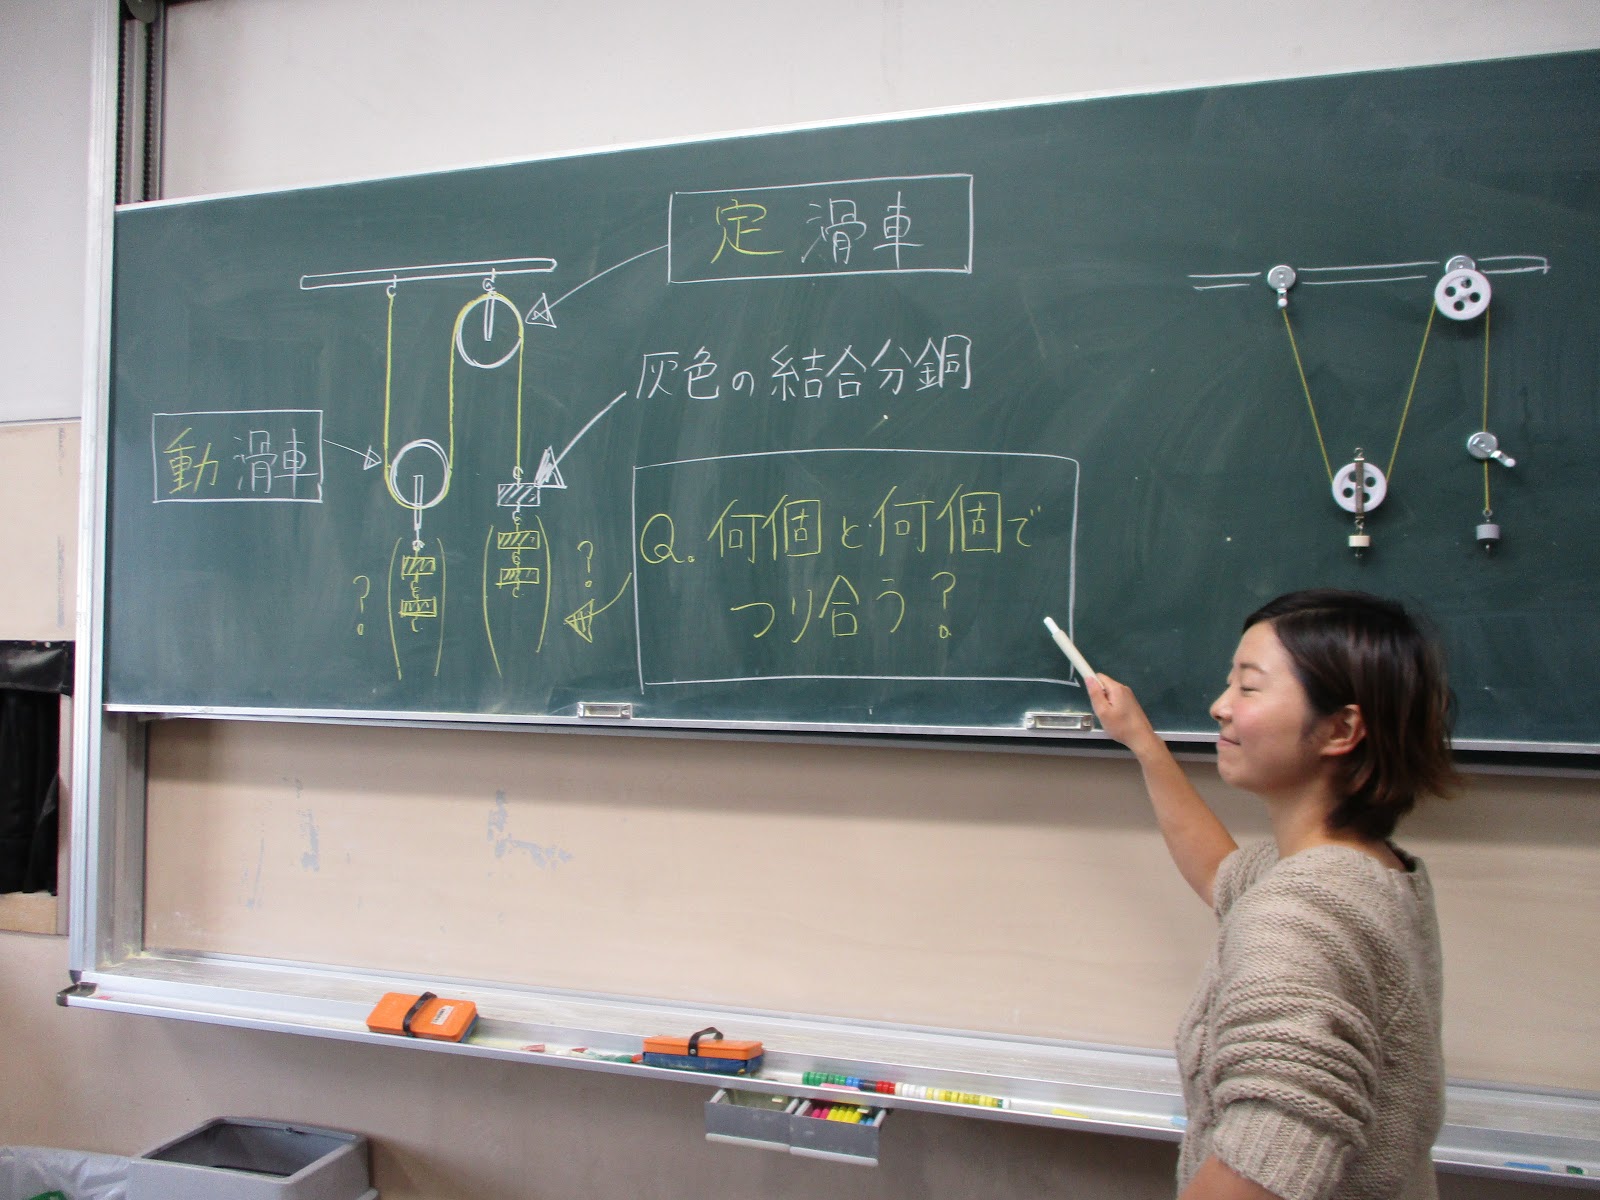 定滑車
灰色の結合分銅
動滑車
Q.何個と何個で
つり合う?
?
?